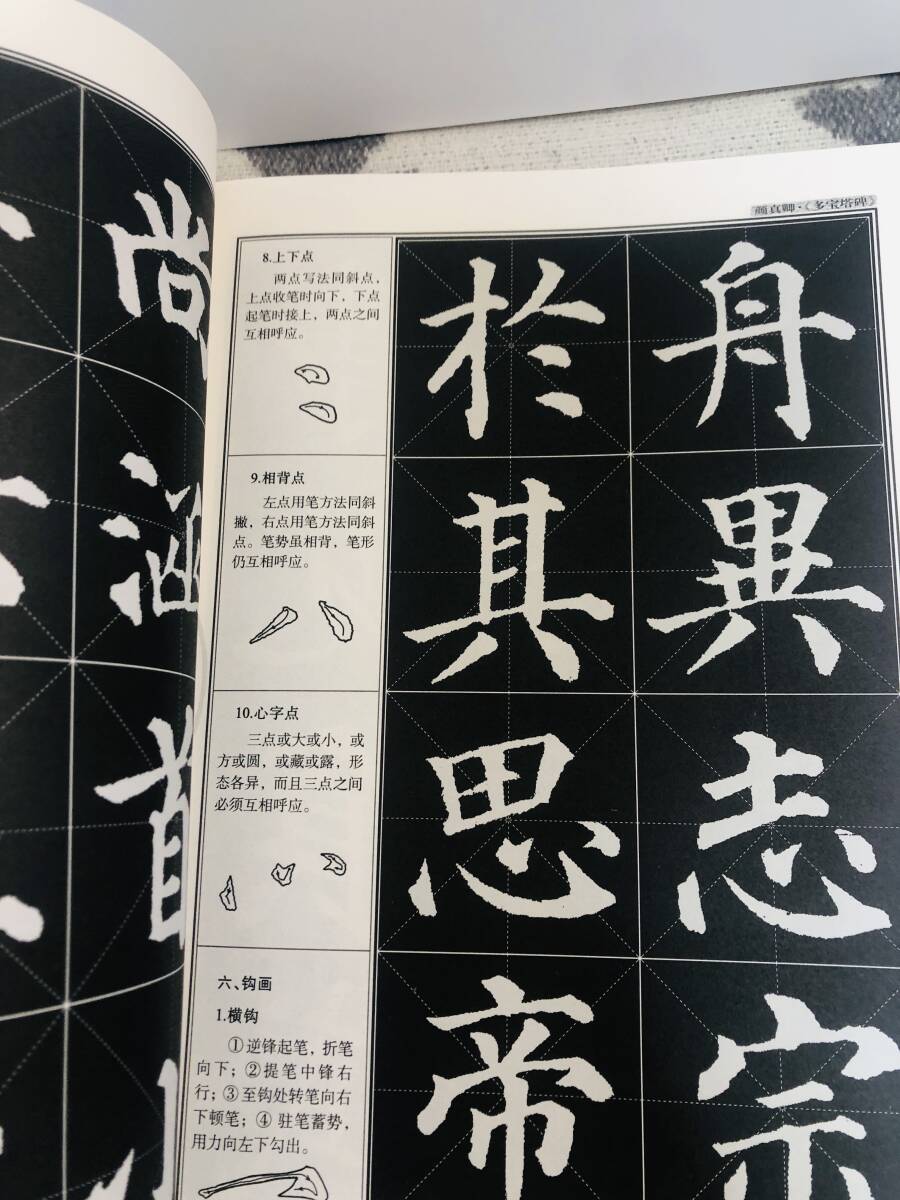 尚
涵
首
颜真卿·《多宝塔碑》
8.上下点
两点写法同斜点，
上点收笔时向下，下点
起笔时接上，两点之间
互相呼应。
於 舟
9.相背点
左点用笔方法同斜
撇，右点用笔方法同斜
点。笔势虽相背，笔形
仍互相呼应。
其 異
10.心字点
三点或大或小，或
方或圆，或藏或露，形
态各异，而且三点之间
必须互相呼应。
思 志
六、钩画
1.横钩
①逆锋起笔，折笔
向下；②提笔中锋右
行；③至钩处转笔向右
下顿笔；④ 驻笔蓄势，
用力向左下勾出。
帝 宗